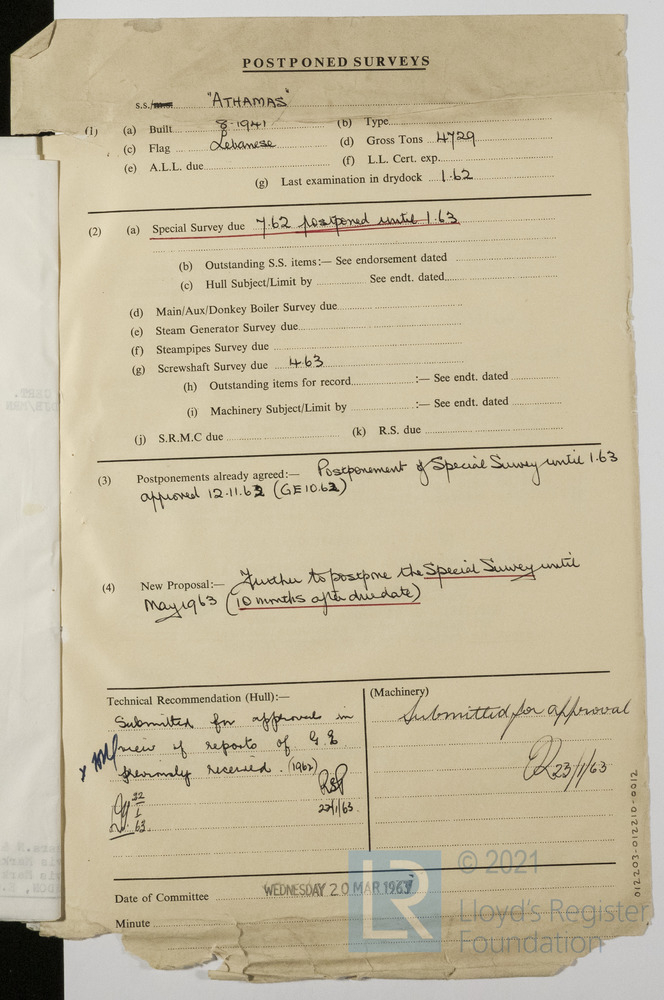 POSTPONED SURVEYS
s.s./ms. "ATHAMAS"
(1) (a) Built 8-1941 (b) Type
(c) Flag Lebanese (d) Gross Tons 4729
(e) A.L.L. due (f) L.L. Cert. exp.
(g) Last examination in drydock 1.62
(2) (a) Special Survey due 7.62 postponed until 1.63
(b) Outstanding S.S. items:— See endorsement dated
(c) Hull Subject/Limit by See endt. dated
(d) Main/Aux/Donkey Boiler Survey due
(e) Steam Generator Survey due
(f) Steampipes Survey due
(g) Screwshaft Survey due 4.63
(h) Outstanding items for record :— See endt. dated
(i) Machinery Subject/Limit by :— See endt. dated
(j) S.R.M.C due (k) R.S. due
(3) Postponements already agreed:— Postponement of Special Survey until 1.63
approved 12.11.62 (GE 10.62)
(4) New Proposal:— Further to postpone the Special Survey until
May 1963 (10 months after due date)
Technical Recommendation (Hull):— (Machinery)
Submitted for approval in
view of reports of G.E.
previously received. (1962)
22/1/63
22
1
63
Submitted for approval
23/1/63
Date of Committee WEDNESDAY 20 MAR 1963
Minute
012203-012210-0012
© 2021
LR
Lloyd's Register
Foundation